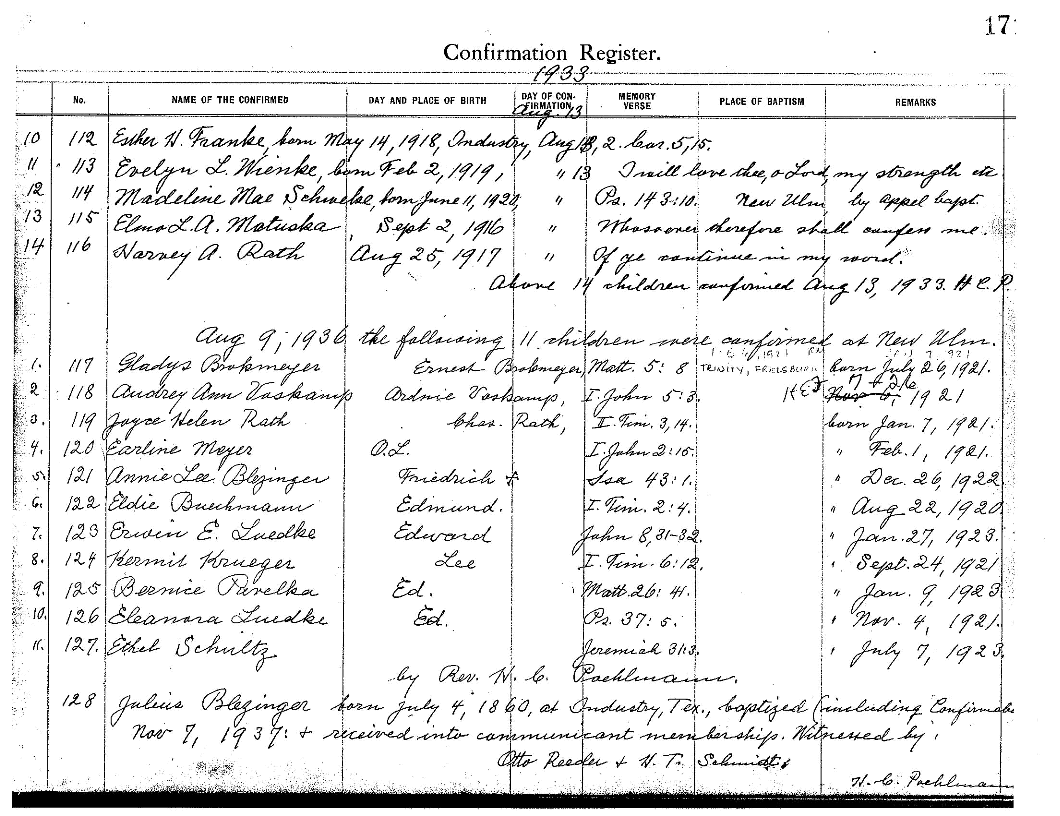 171
Confirmation Register.
1933
No. NAME OF THE CONFIRMED DAY AND PLACE OF BIRTH DAY OF CON- FIRMATION MEMORY VERSE PLACE OF BAPTISM REMARKS
Aug. 13
10 112 Esther H. Franke, born May 14, 1918, Industry, Aug 13, 2. Cor. 5, 15.
11 113 Evelyn L. Wienke, born Feb 2, 1919, " 13 I will love thee, o Lord, my strength etc
12 114 Madeline Mae Schwelse, born June 11, 1920, " Ps. 143:10. New Ulm, by appel bapt.
13 115 Elmo L. A. Matuska, Sept 2, 1916 " Whosoever therefore shall confess me.
14 116 Harvey A. Rath Aug 25, 1917 " If ye continue in my word.
Above 14 children confirmed Aug 13, 1933. H C. P.
Aug 9, 1936 the following 11 children were confirmed at New Ulm.
1. 117 Gladys Brokmeyer Ernest Brokmeyer, Matt. 5: 8 TRINITY, FRELSBURG born July 26, 1921.
2 118 Audrey Ann Voskamp Ardnie Voskamp, I. John 5:3. 1921
3. 119 Joyce Helen Rath Chas. Rath, II. Tim. 3, 14. born Jan. 7, 1921.
4. 120 Earline Meyer O.L. I. John 2:15. " Feb. 1, 1921.
5. 121 Annie Lee Blezinger Friedrich + Isa 43:1. " Dec. 26, 1922
6. 122 Eldie Buechmann Edmund. I. Tim. 2:4. " Aug 22, 1920
7. 123 Erwin E. Luedke Edward John 8, 31-32. " Jan. 27, 1923.
8. 124 Kermit Krueger Lee I. Tim. 6:12. " Sept. 24, 1921
9. 125 Bernice Pavelka Ed. Matt. 26: 41. " Jan. 9, 1923
10. 126 Eleanora Luedke Ed. Ps. 37: 5. " Nov. 4, 1921.
11. 127. Ethel Schultz Jeremiah 31:3. " July 7, 1923.
by Rev. H. C. Poehlmann.
128 Julius Blezinger born July 4, 1860, at Industry, Tex., baptized (including
Nov 7, 1937: & received into communicant membership. Witnessed by:
Otto Reeder & H. T. Schmidt,
H. C. Poehlmann